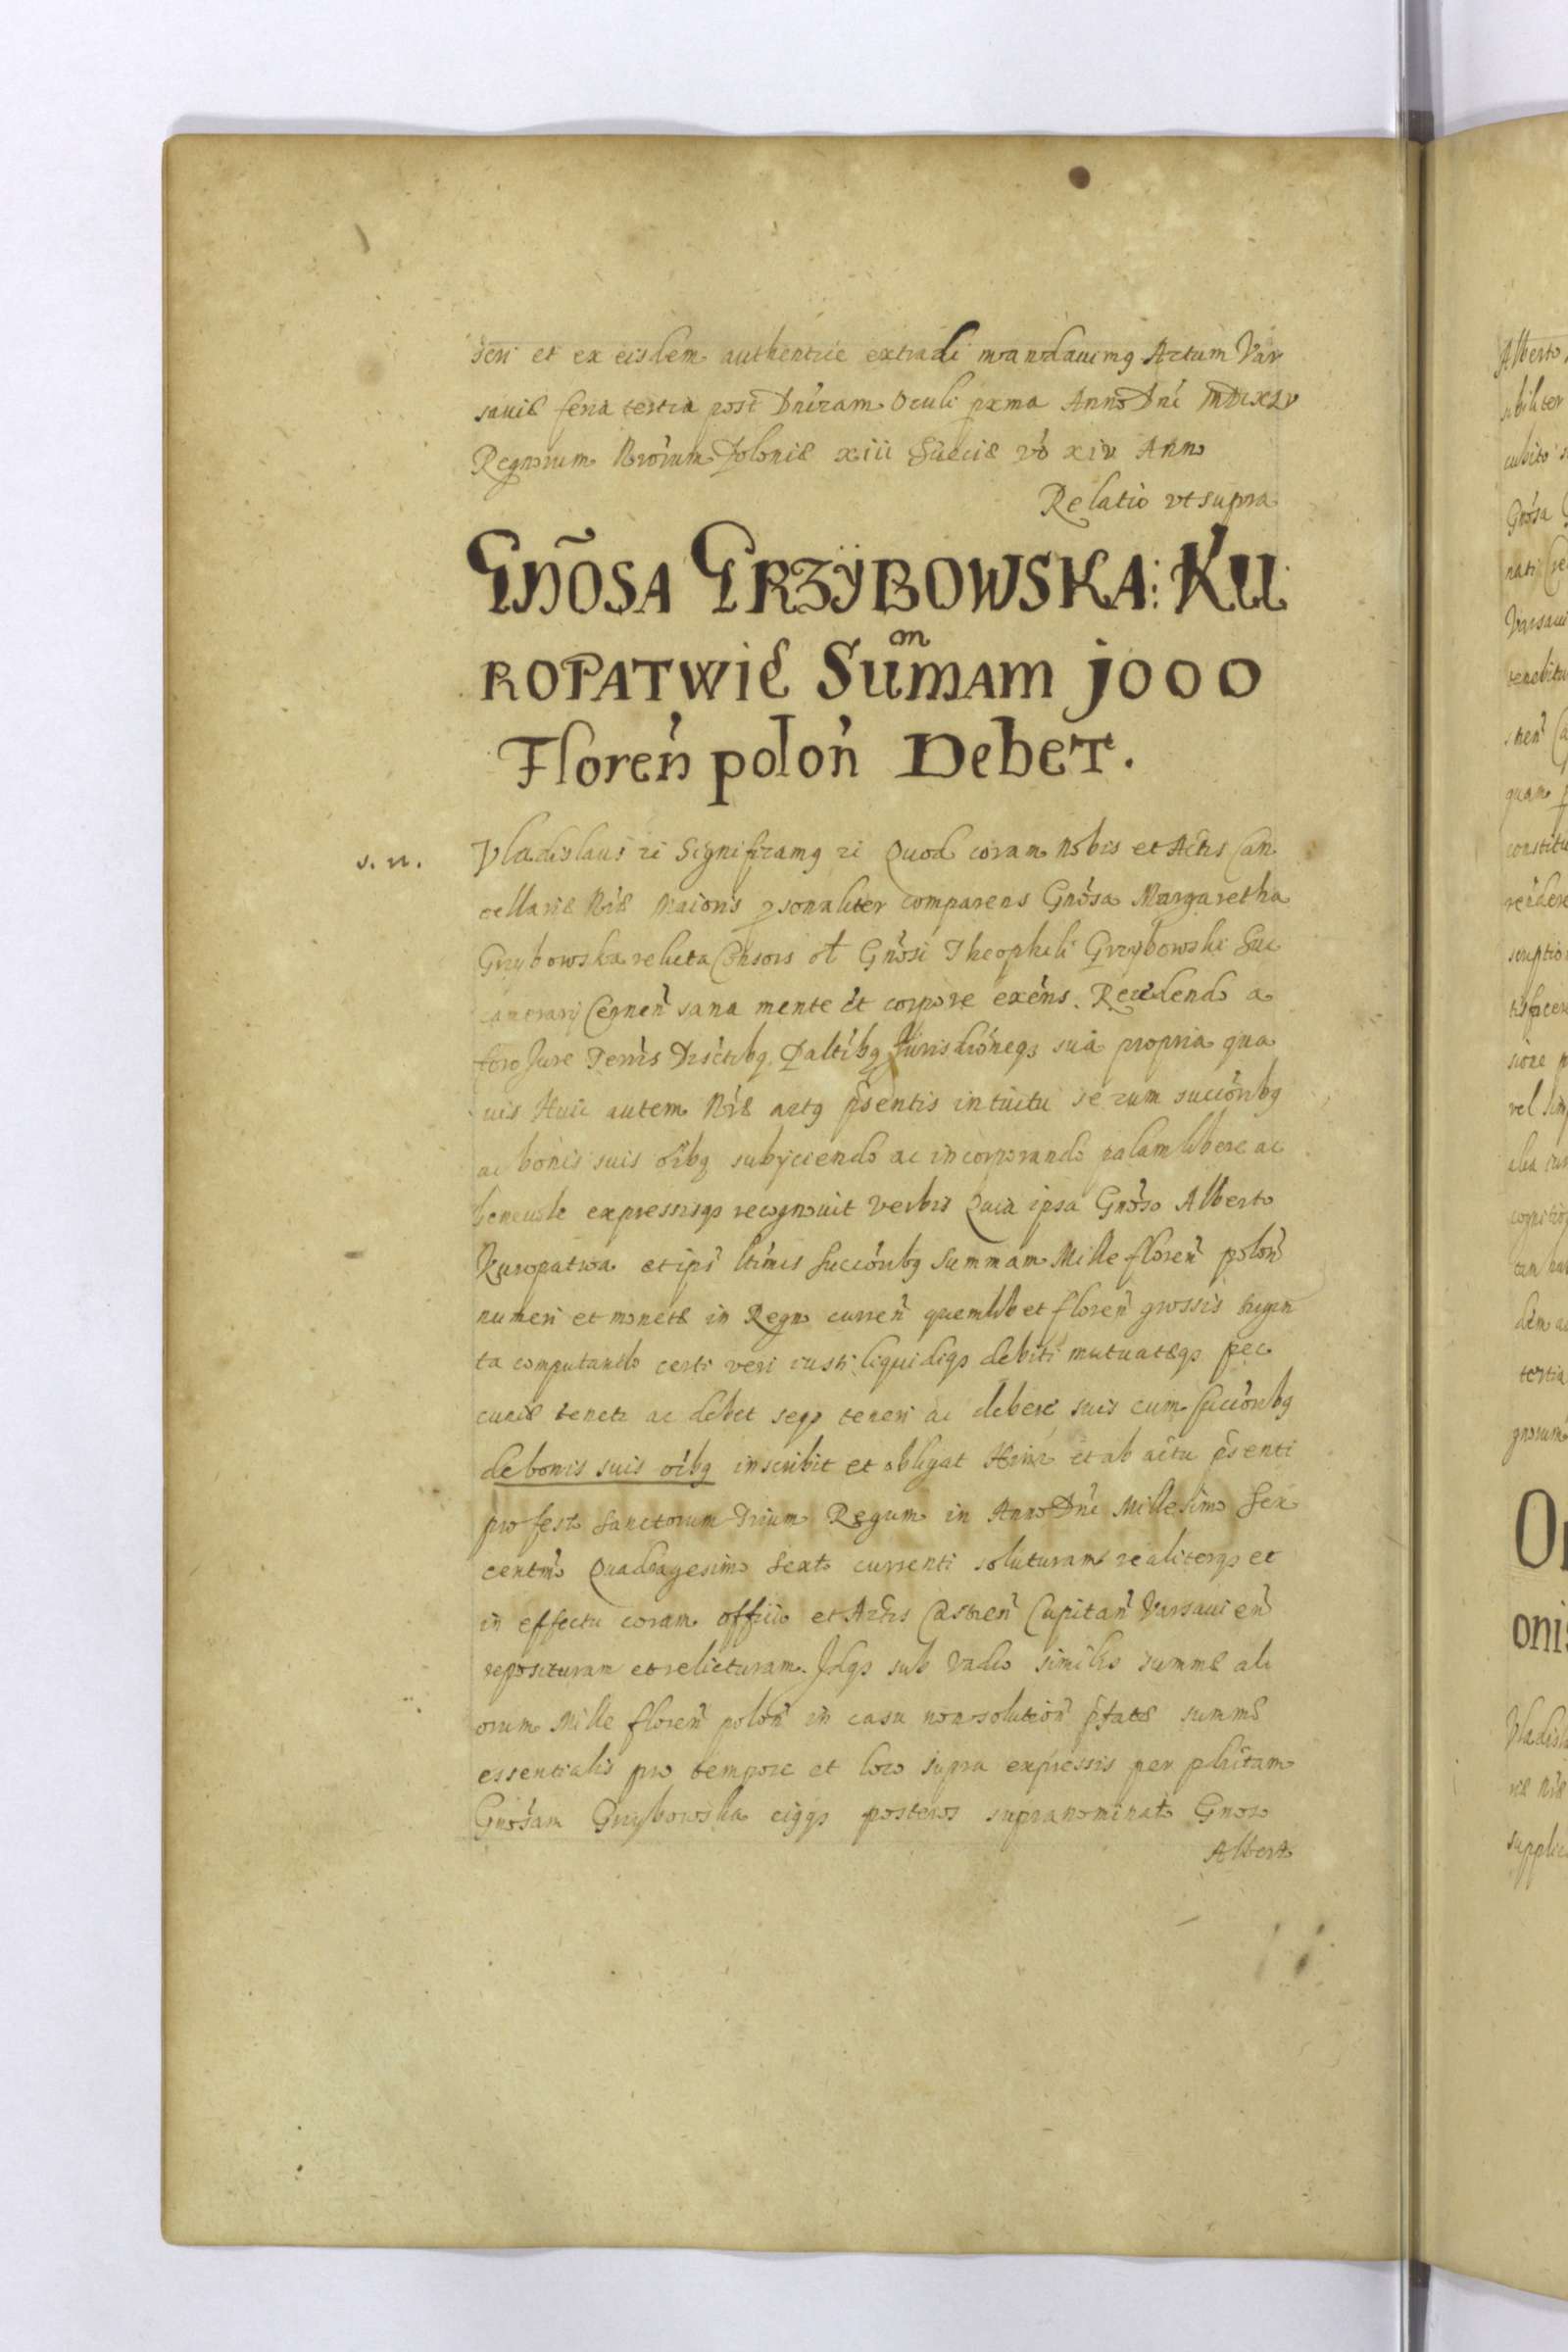 seri et ex eisdem authentice extradi mandauimq Actum Var
sauiæ feria tertia post Dnicam Oculi pxma Anno Dni MDCXLV
Regnorum Nrorum Poloniæ xiii Sueciæ vo xiv Anno
Relatio vt supra
GÑOSA GRZŸBOWSKA: KU
ROPATWIÆ SUM̃MAM 1000
Floreń poloń DebeT.
s. n.
Vladislaus ic Significamq ic Quod coram Nobis et Actis Can
cellariæ Nræ Maioris psonaliter comparens Gnosa Margaretha
Grzybowska relicta Consors ol Gnosi Theophili Grzybowski Suc
camerarij Cernen sana mente et corpore exens. Recedendo a
foro Jure Terris Dsctibq Paltibq Jurisdioneqз sua propria qua
uis Huic autem Nræ actq psentis intuitu se cum succoribq
ac bonis suis oibq subijciendo ac incorporando palam libere ac
beneuole expressisqз recognouit verbis Quia ipsa Gnoso Alberto
Kuropatwa et ips ltimis Succoribq Summam Mille floren polon
numeri et monetæ in Regno curren quemlibet floren grossis trigin
ta computando certi veri iusti liquidiqз debiti mutuatæqз pec
cuniæ tenetr ac debet seqз teneri ac debere suis cum Succoribq
de bonis suis oibq inscribit et obligat Hinc et ab actu psenti
pro festo Sanctorum Trium Regum in Anno Dni Millesimo Sex
centmo Quadragesimo Sexto currenti soluturam realiterqз et
in effectu coram officio et Actis Castren Capitan Varsauien
reposituram et relicturam. Idqз sub vadio similis summæ ali
orum Mille floren polon in casu non solution pfatæ summæ
essentialis pro tempore et loco supra expressis per phitam
Gnosam Grzybowska eiqqз posteros supranominato Gnoso
Alberto